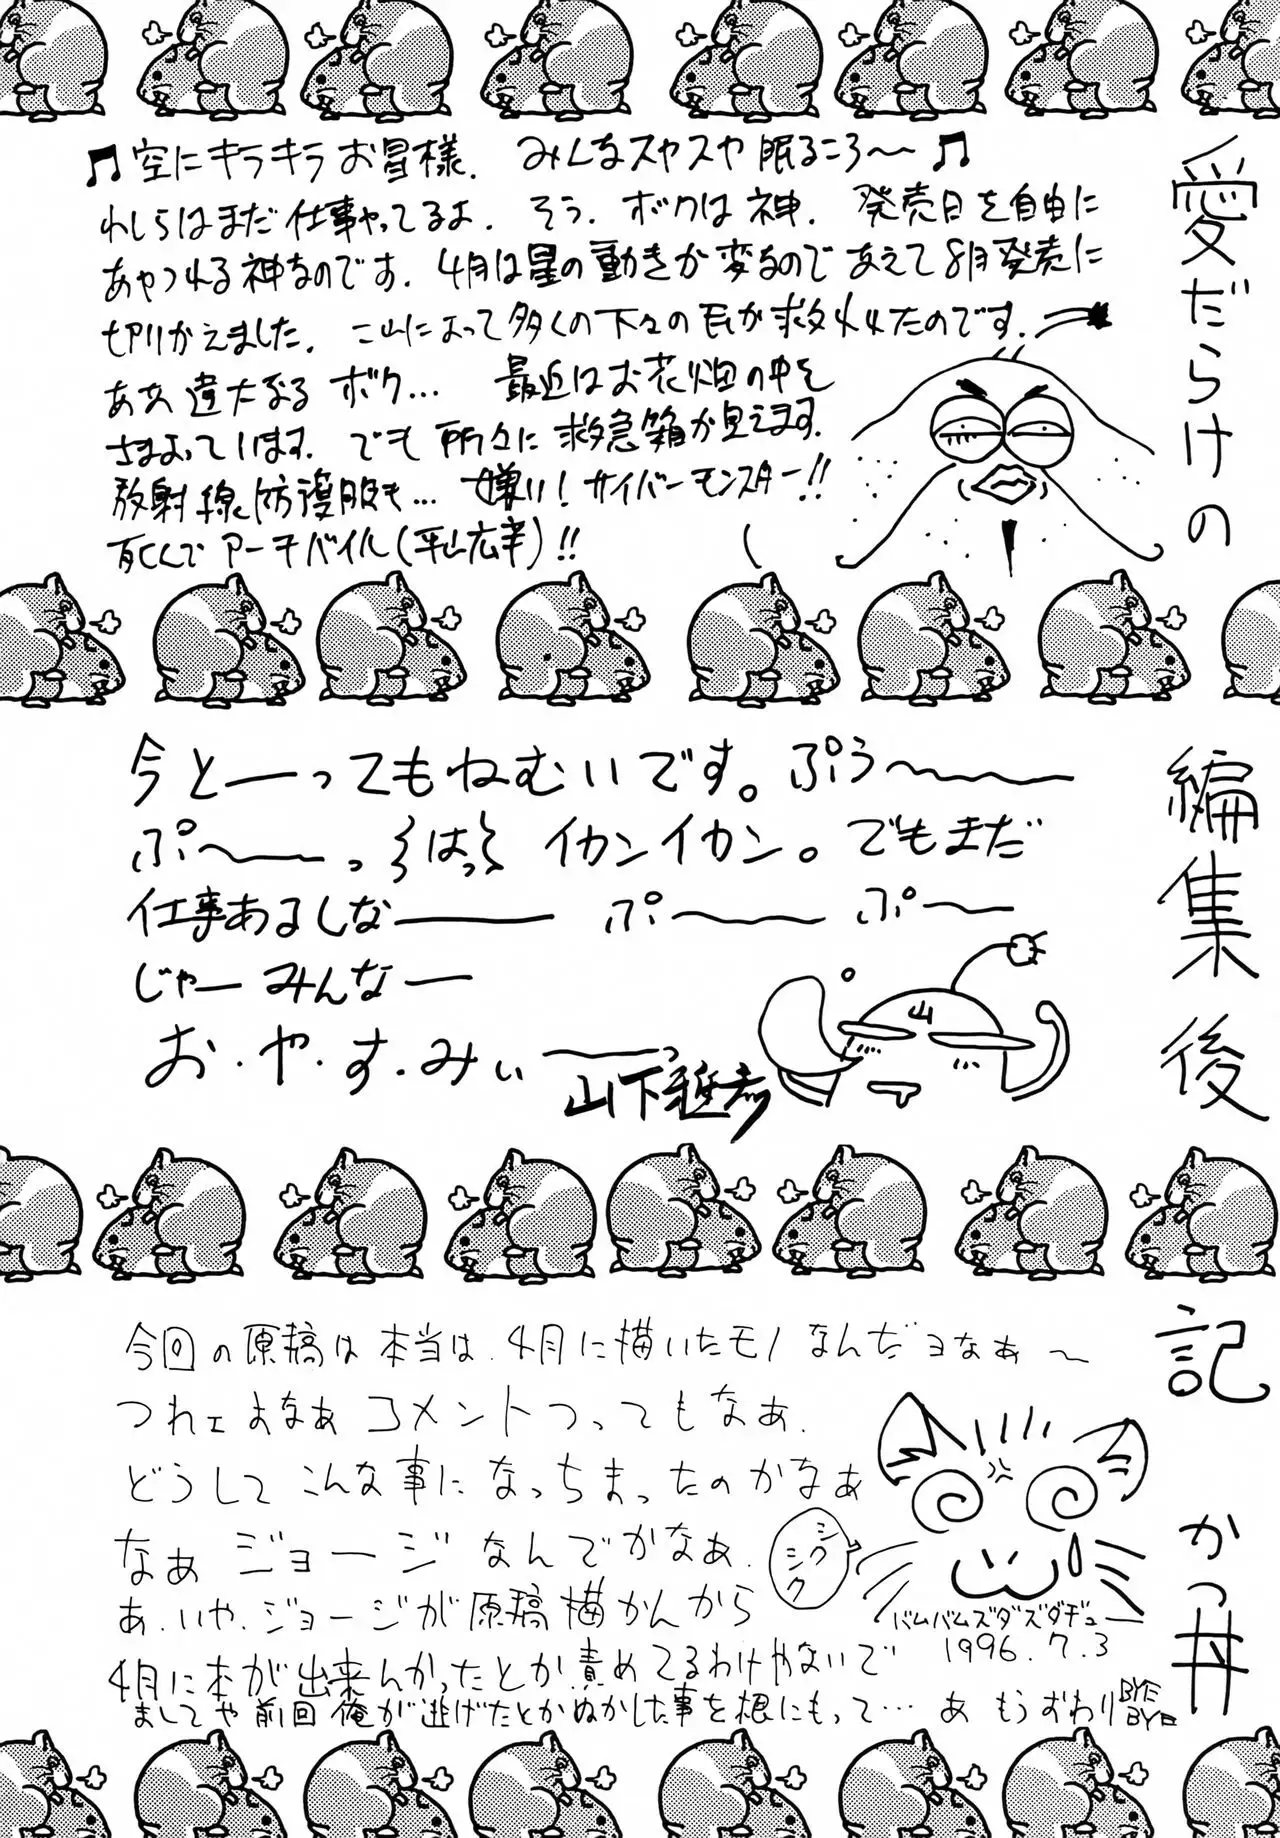 愛だらけの編集後記 かつ丼
♫空にキラキラお星様. みんなスヤスヤ眠るころ〜♫
わしらはまだ仕事やってるよ. そう. ボクは神. 発売日を自由に
あやつれる神なのです. 4月は星の動きが変なのであえて8月発売に
切りかえました. これによって多くの下々の民が救われたのです.
ああ 違大なる ボク… 最近はお花畑の中を
さまよっています. でも 所々に 救急箱が見えます.
放射線防護服も… 嫌い! サイバーモンスター!!
死んで アーキバイル(平山広幸)!!
今と――ってもねむいです。ぷう〜――
ぷ〜――っ はっ イカンイカン。でもまだ
仕事あるしな―― ぷ―〜 ぷ―〜
じゃー みんなー
お・や・す・みぃ――っ
山下
山
今回の原稿は 本当は. 4月に描いたモノなんだョなぁ〜
つれェよなぁ コメントつってもなぁ.
どうして こんな事に なっちまったのかなぁ
なぁ ジョージ なんでかなぁ.
あ. いや. ジョージが原稿描かんから
4月に本が出来んかったとか責めてるわけやないで
ましてや 前回 俺が逃げたとかぬかした事を根にもって… あ もうおわり BYE BYE
シクシク
バムバムズダズダヂュー
1996. 7. 3